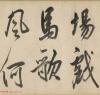 場戲
馬歌
風何